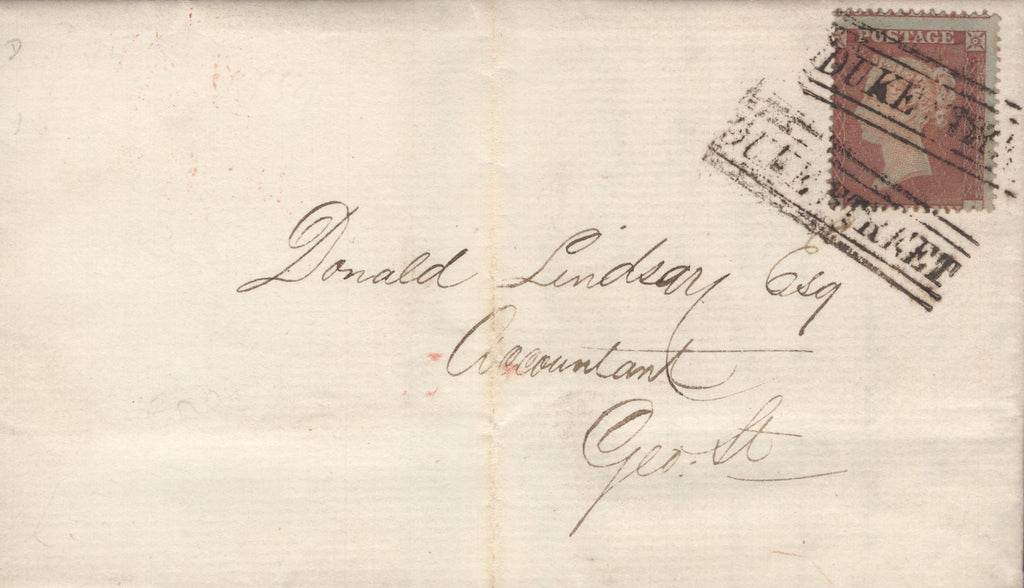 POSTAGE
DUKE
DUKE STREET
Donald Lindsay Esq
Accountant
Geo. St